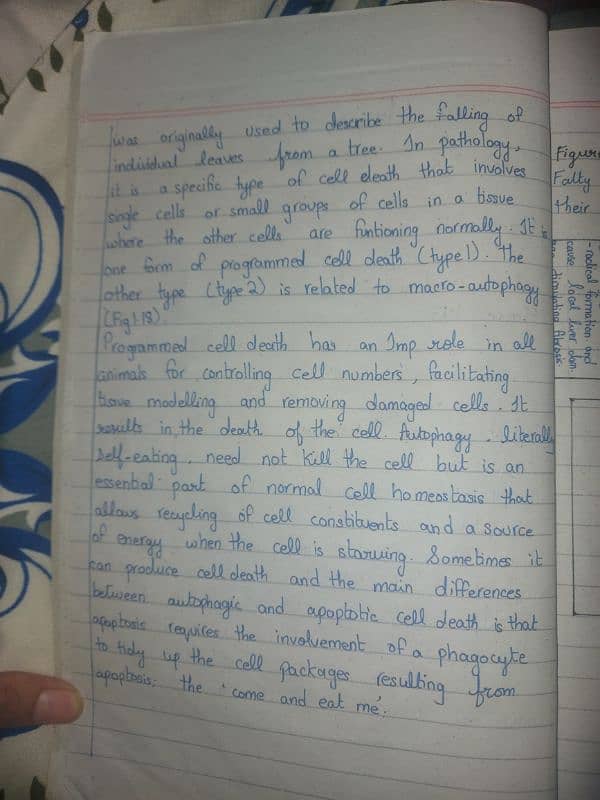 was originally used to describe the falling of
individual leaves from a tree. In pathology,
it is a specific type of cell death that involves
single cells or small groups of cells in a tissue
where the other cells are funtioning normally. It is
one form of programmed cell death (type 1). The
other type (type 2) is related to macro-autophagy
(Fig 1.18).
Programmed cell death has an Imp role in all
animals for controlling cell numbers, facilitating
tissue modelling and removing damaged cells. It
results in the death of the cell. Autophagy, literally
self-eating, need not kill the cell but is an
essential part of normal cell homeostasis that
allows recycling of cell constituents and a source
of energy when the cell is starving. Sometimes it
can produce cell death and the main differences
between autophagic and apoptotic cell death is that
apoptosis requires the involvement of a phagocyte
to tidy up the cell packages resulting from
apoptosis: the 'come and eat me'.
Figure
Fatty
their